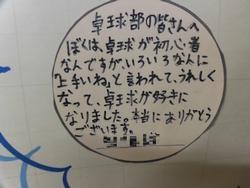 卓球部の皆さんへ
ぼくは、卓球が初心者
なんですが、いろいろな人に
「上手いね」と言われて、うれしく
なって、卓球が好きに
なりました。本当にありがとう
ございます。